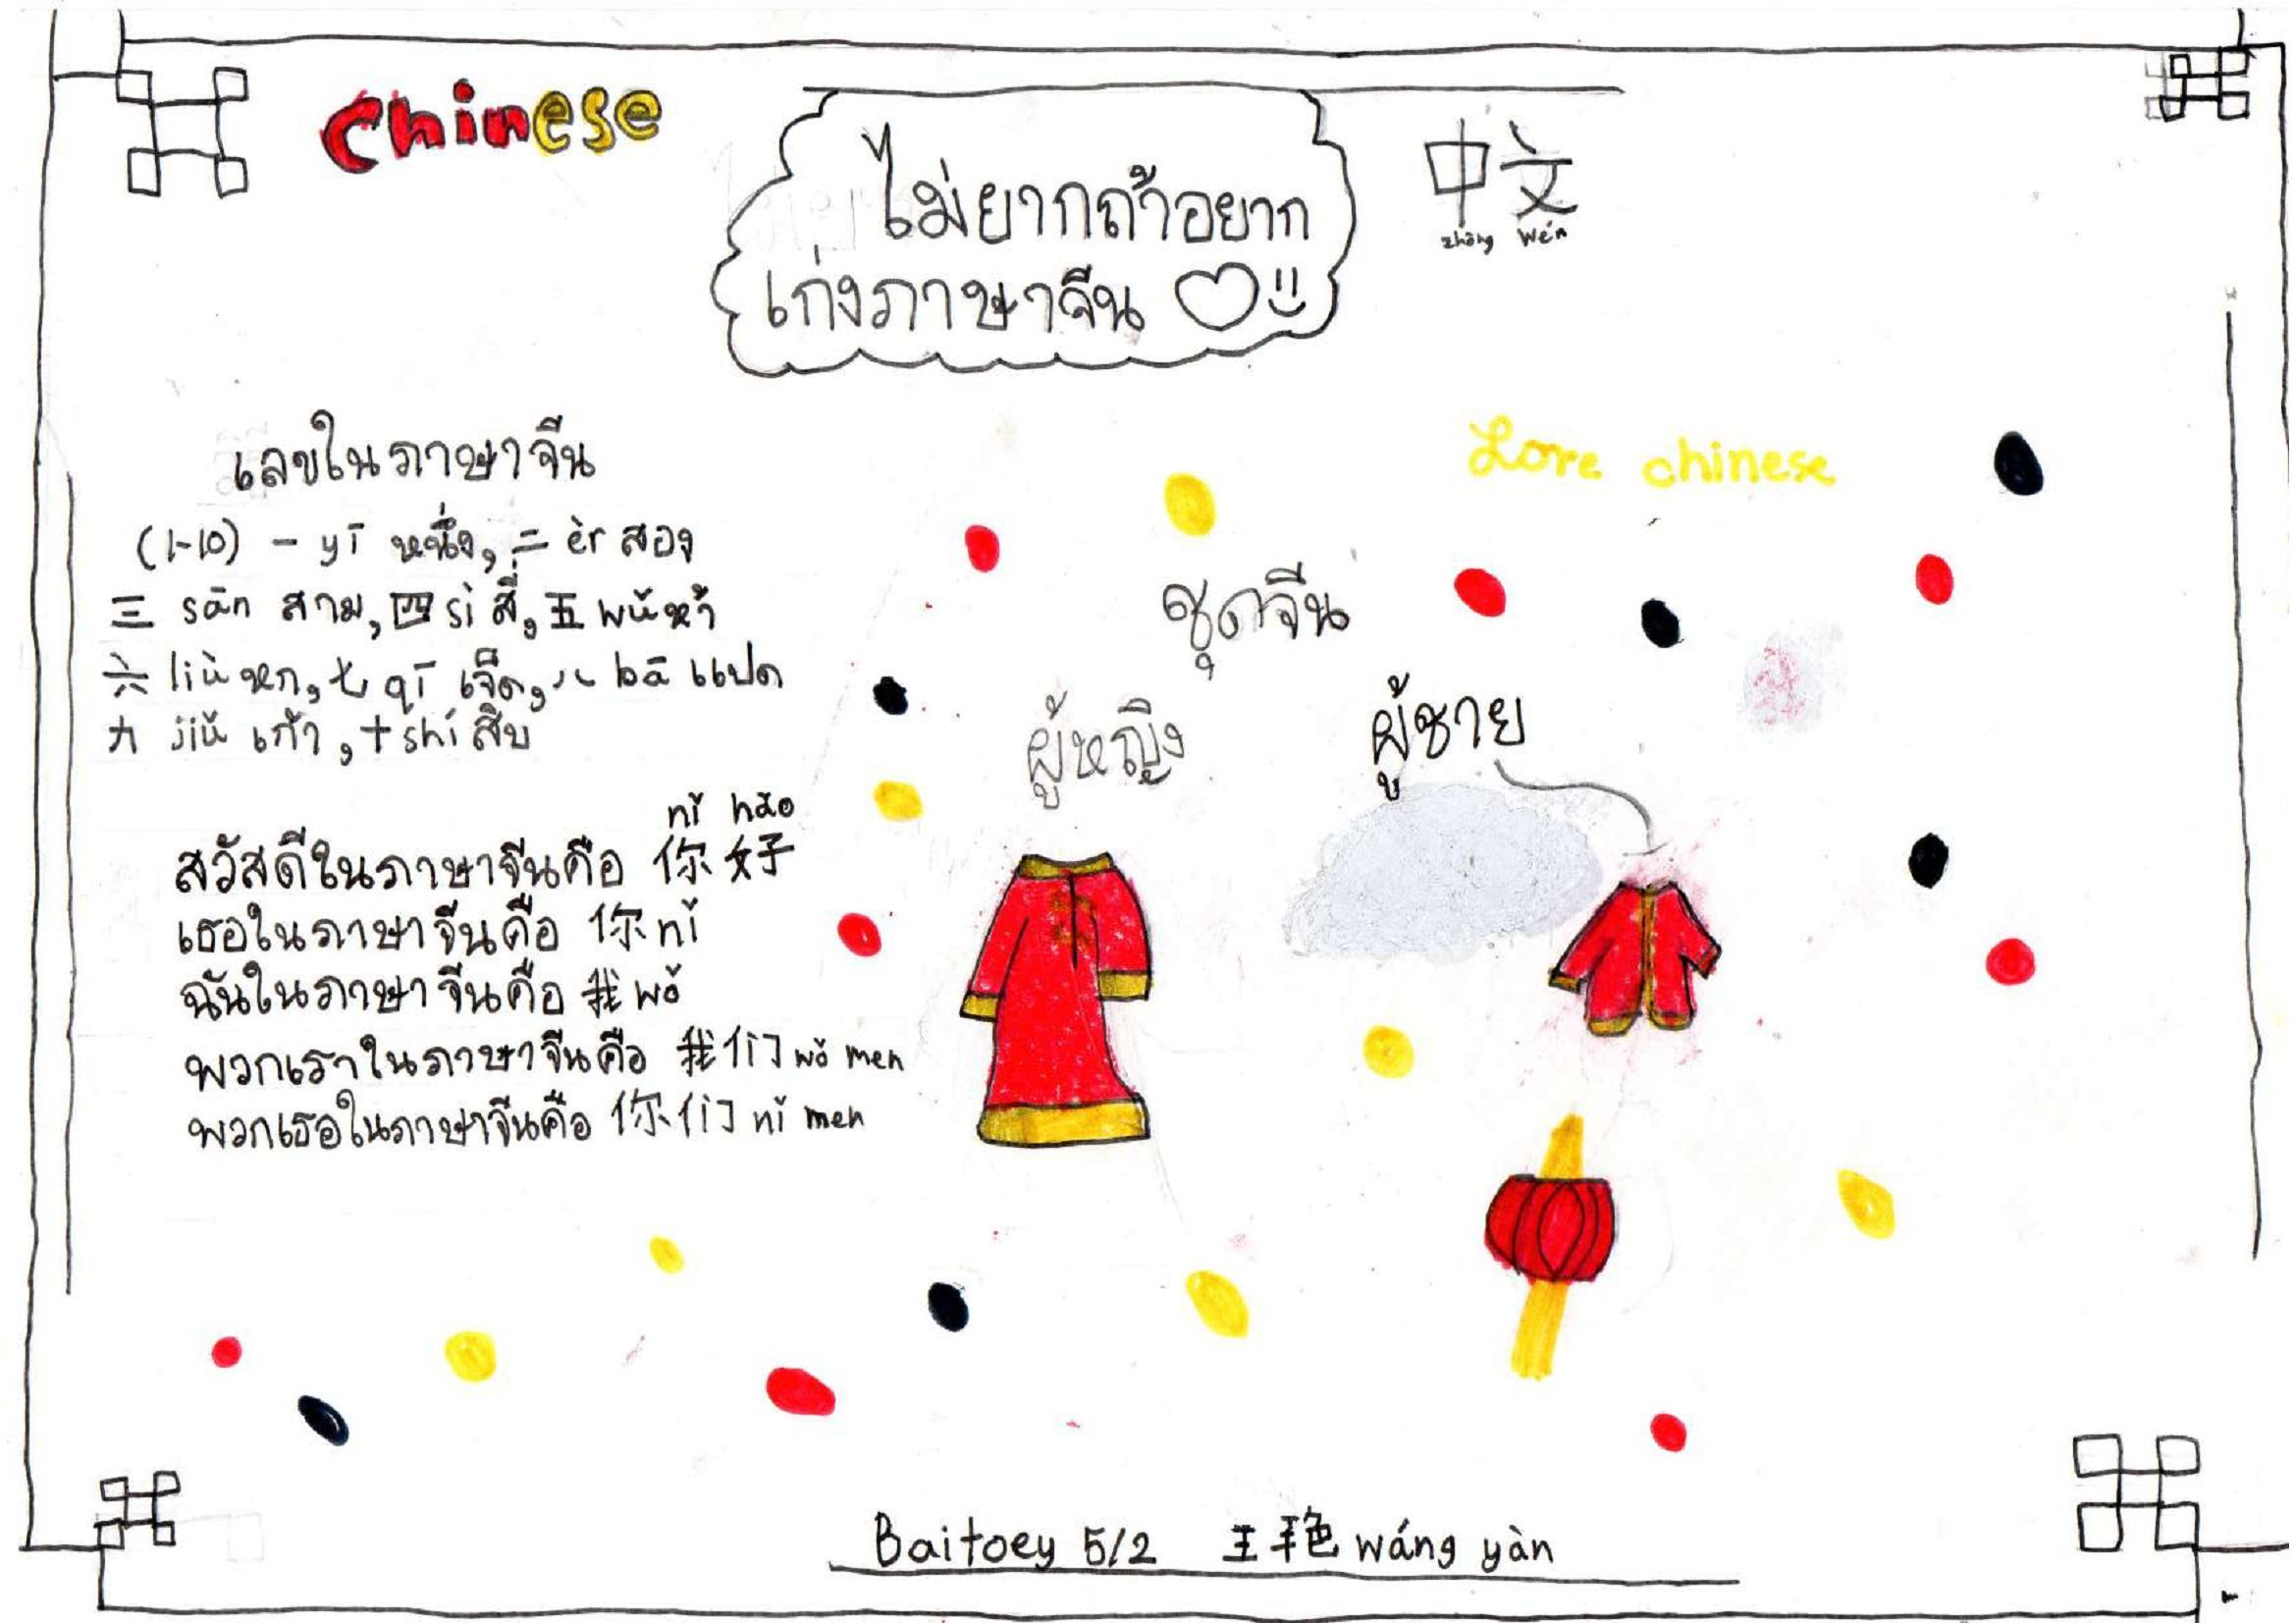 Chinese
ไม่ยากถ้าอยาก
เก่งภาษาจีน
中文
zhōng wén
เลขในภาษาจีน
(1-10) 一 yī หนึ่ง, 二 èr สอง
三 sān สาม, 四 sì สี่, 五 wǔ ห้า
六 liù หก, 七 qī เจ็ด, 八 bā แปด
九 jiǔ เก้า, 十 shí สิบ
nǐ hǎo
สวัสดีในภาษาจีนคือ 你好
เธอในภาษาจีนคือ 你 nǐ
ฉันในภาษาจีนคือ 我 wǒ
พวกเราในภาษาจีนคือ 我们 wǒ men
พวกเธอในภาษาจีนคือ 你们 nǐ men
Love chinese
ชุดจีน
ผู้หญิง
ผู้ชาย
Baitoey 5/2 王艳 wáng yàn